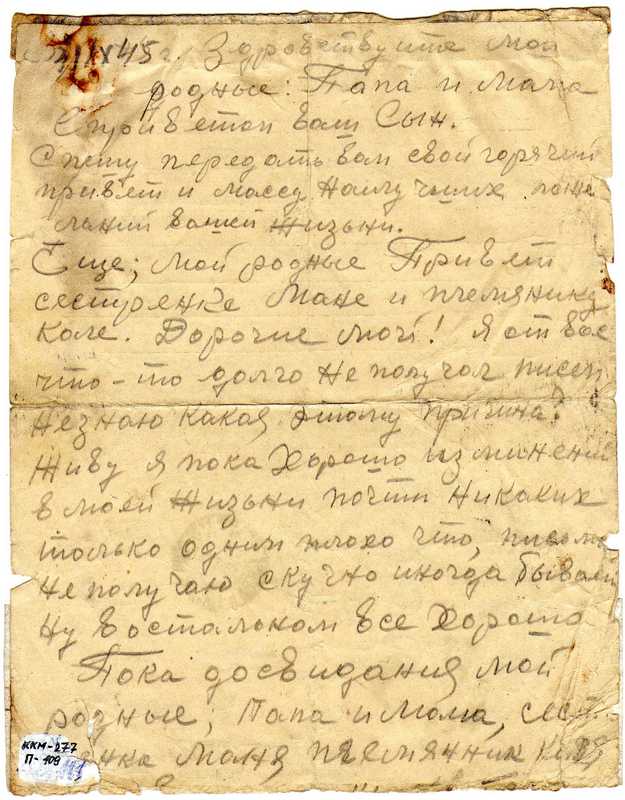 IX 45 г. Здравствуите мои
родные: Папа и мама
с приветом вам Сын.
Спешу передать вам свой горячий
привет и массу наилучших поже
ланий вашей жизьни.
Еще; мои родные Привет
сестренке Мане и племянику
Коле. Дорогие мои! я от вас
что-то долго не получал писем
незнаю какая этому причина?
Живу я пока хорошо изминений
в моей жизьни почти никаких
только одним плохо что, писем
не получаю скучно иногда бывает
ну в остальном все хорошо
Пока досвидания мои
родные; Папа и мама, сест
енка Маня, племянник Коля
ККМ-277
П-109